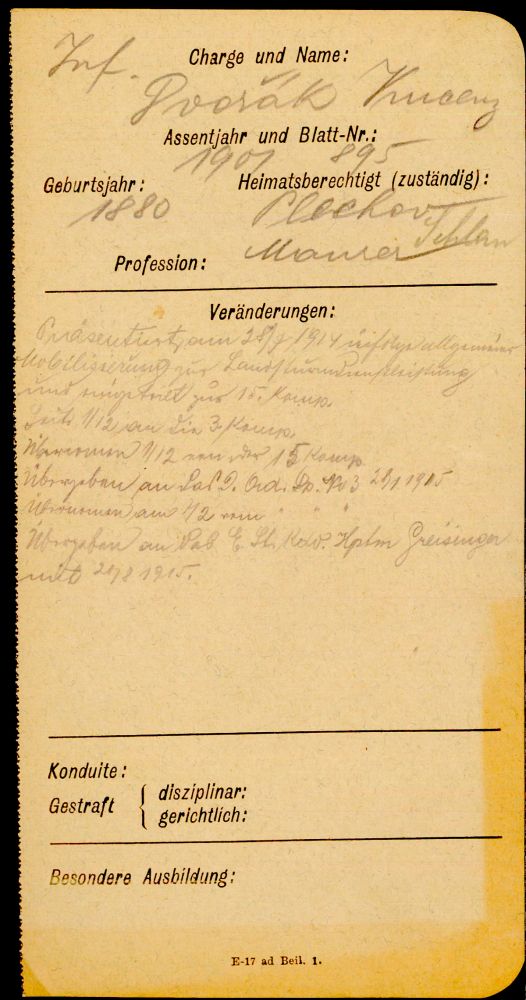 Charge und Name:
Inf. Dvořák Vincenz
Assentjahr und Blatt-Nr.:
1901 895
Geburtsjahr: Heimatsberechtigt (zuständig):
1880 Plechov Schlan
Profession: Maurer
Veränderungen:
Präsentiert am 28/7 1914 infolge allgemeiner
Mobilisierung zur Landsturmdienstleistung
und eingeteilt zur 15. Komp.
1/12 an die 3. Komp.
Übernomen 1/12 von der 15 Komp
Übergeben an das No 3 28/1 1915
Übernomen am 1/2 vom " " "
Übergeben an das Hptm Greisinger
mit 1915.
Konduite:
Gestraft { disziplinar:
gerichtlich:
Besondere Ausbildung:
E-17 ad Beil. 1.